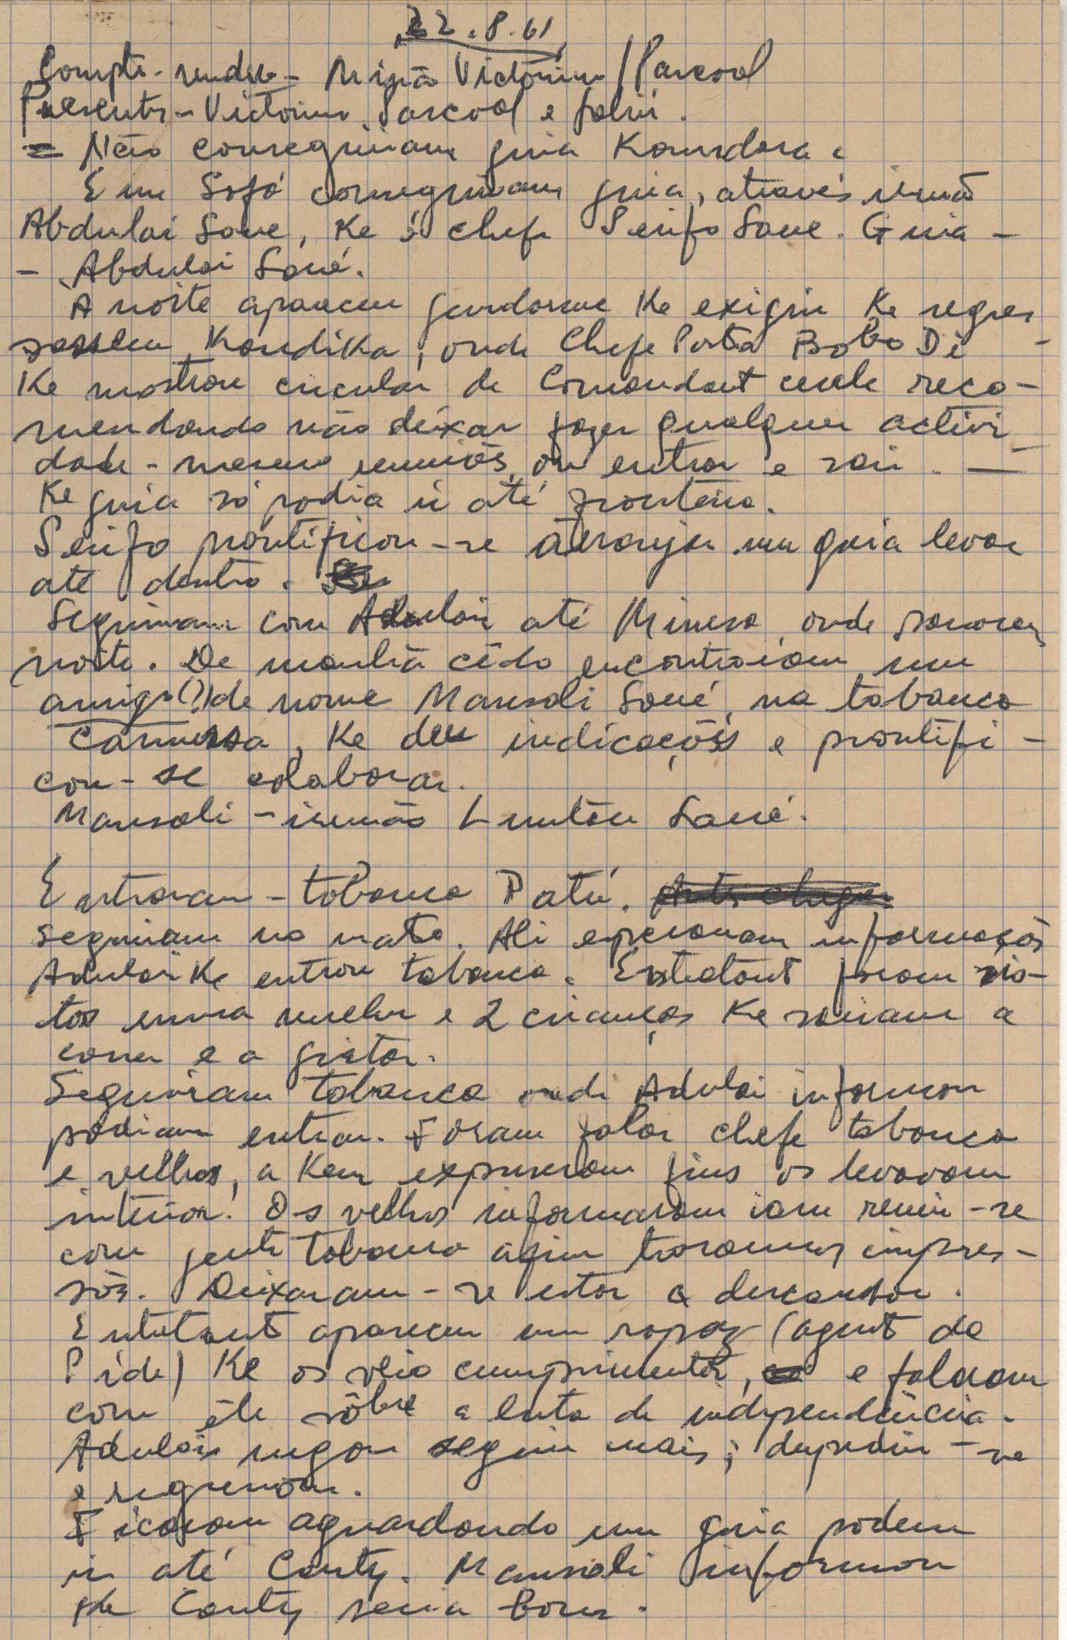 22.8.61
Compte-rendu - Missão Victorino/Pascoal
Presents - Victorino, Pascoal e
= Não conseguiram guia Koundara.
Em conseguiram guia, através irmão
Abdulai Sané, Ke é chefe Serifo Sané. Guia -
- Abdulai Sané.
A noite apareceu gendarme Ke exigiu Ke regres
sassem Koundika, onde Chefe Posto Bobo Di -
Ke mostrou circular de Comandant cercle reco-
mendando não deixar fazer qualquer activi
dade - mesmo reuniões, ou entrar e sair. —
Ke guia só podia ir até fronteira.
Serifo prontificou-se arranjar um guia levar
até dentro.
Seguiram com Adulai até onde passaram
noite. De manhã cêdo encontraram um
amigo (?) de nome Mansali Sané, na tabanca
Ke deu indicações e prontifi-
cou-se colaborar.
Mansali - irmão Sané.
Entraram - tabanca Patú. Ants chegar
seguiram no mato. Ali esperavam informações
Adulai Ke entrou tabanca. Entretant foram vis-
tos numa mulher e 2 crianças Ke sairam a
correr e a gritar.
Seguiram tabanca onde Adulai informou
podiam entrar. Foram falar chefe tabanca
e velhos, a Kem expuseram fins os levavam
interior. Os velhos informaram iam reunir-se
com gente tabanca afim trocarmos impres-
sões. Deixaram-se estar a descansar.
Entetant apareceu um rapaz (agent da
Pide) Ke os veio cumprimentar, e falaram
com êle sôbre a luta de independência.
Adulai negou seguir mais; despediu-se
e regressou.
Ficaram aguardando um guia podem
ir até Canty. Mansali informou
Ke Canty seria bom.